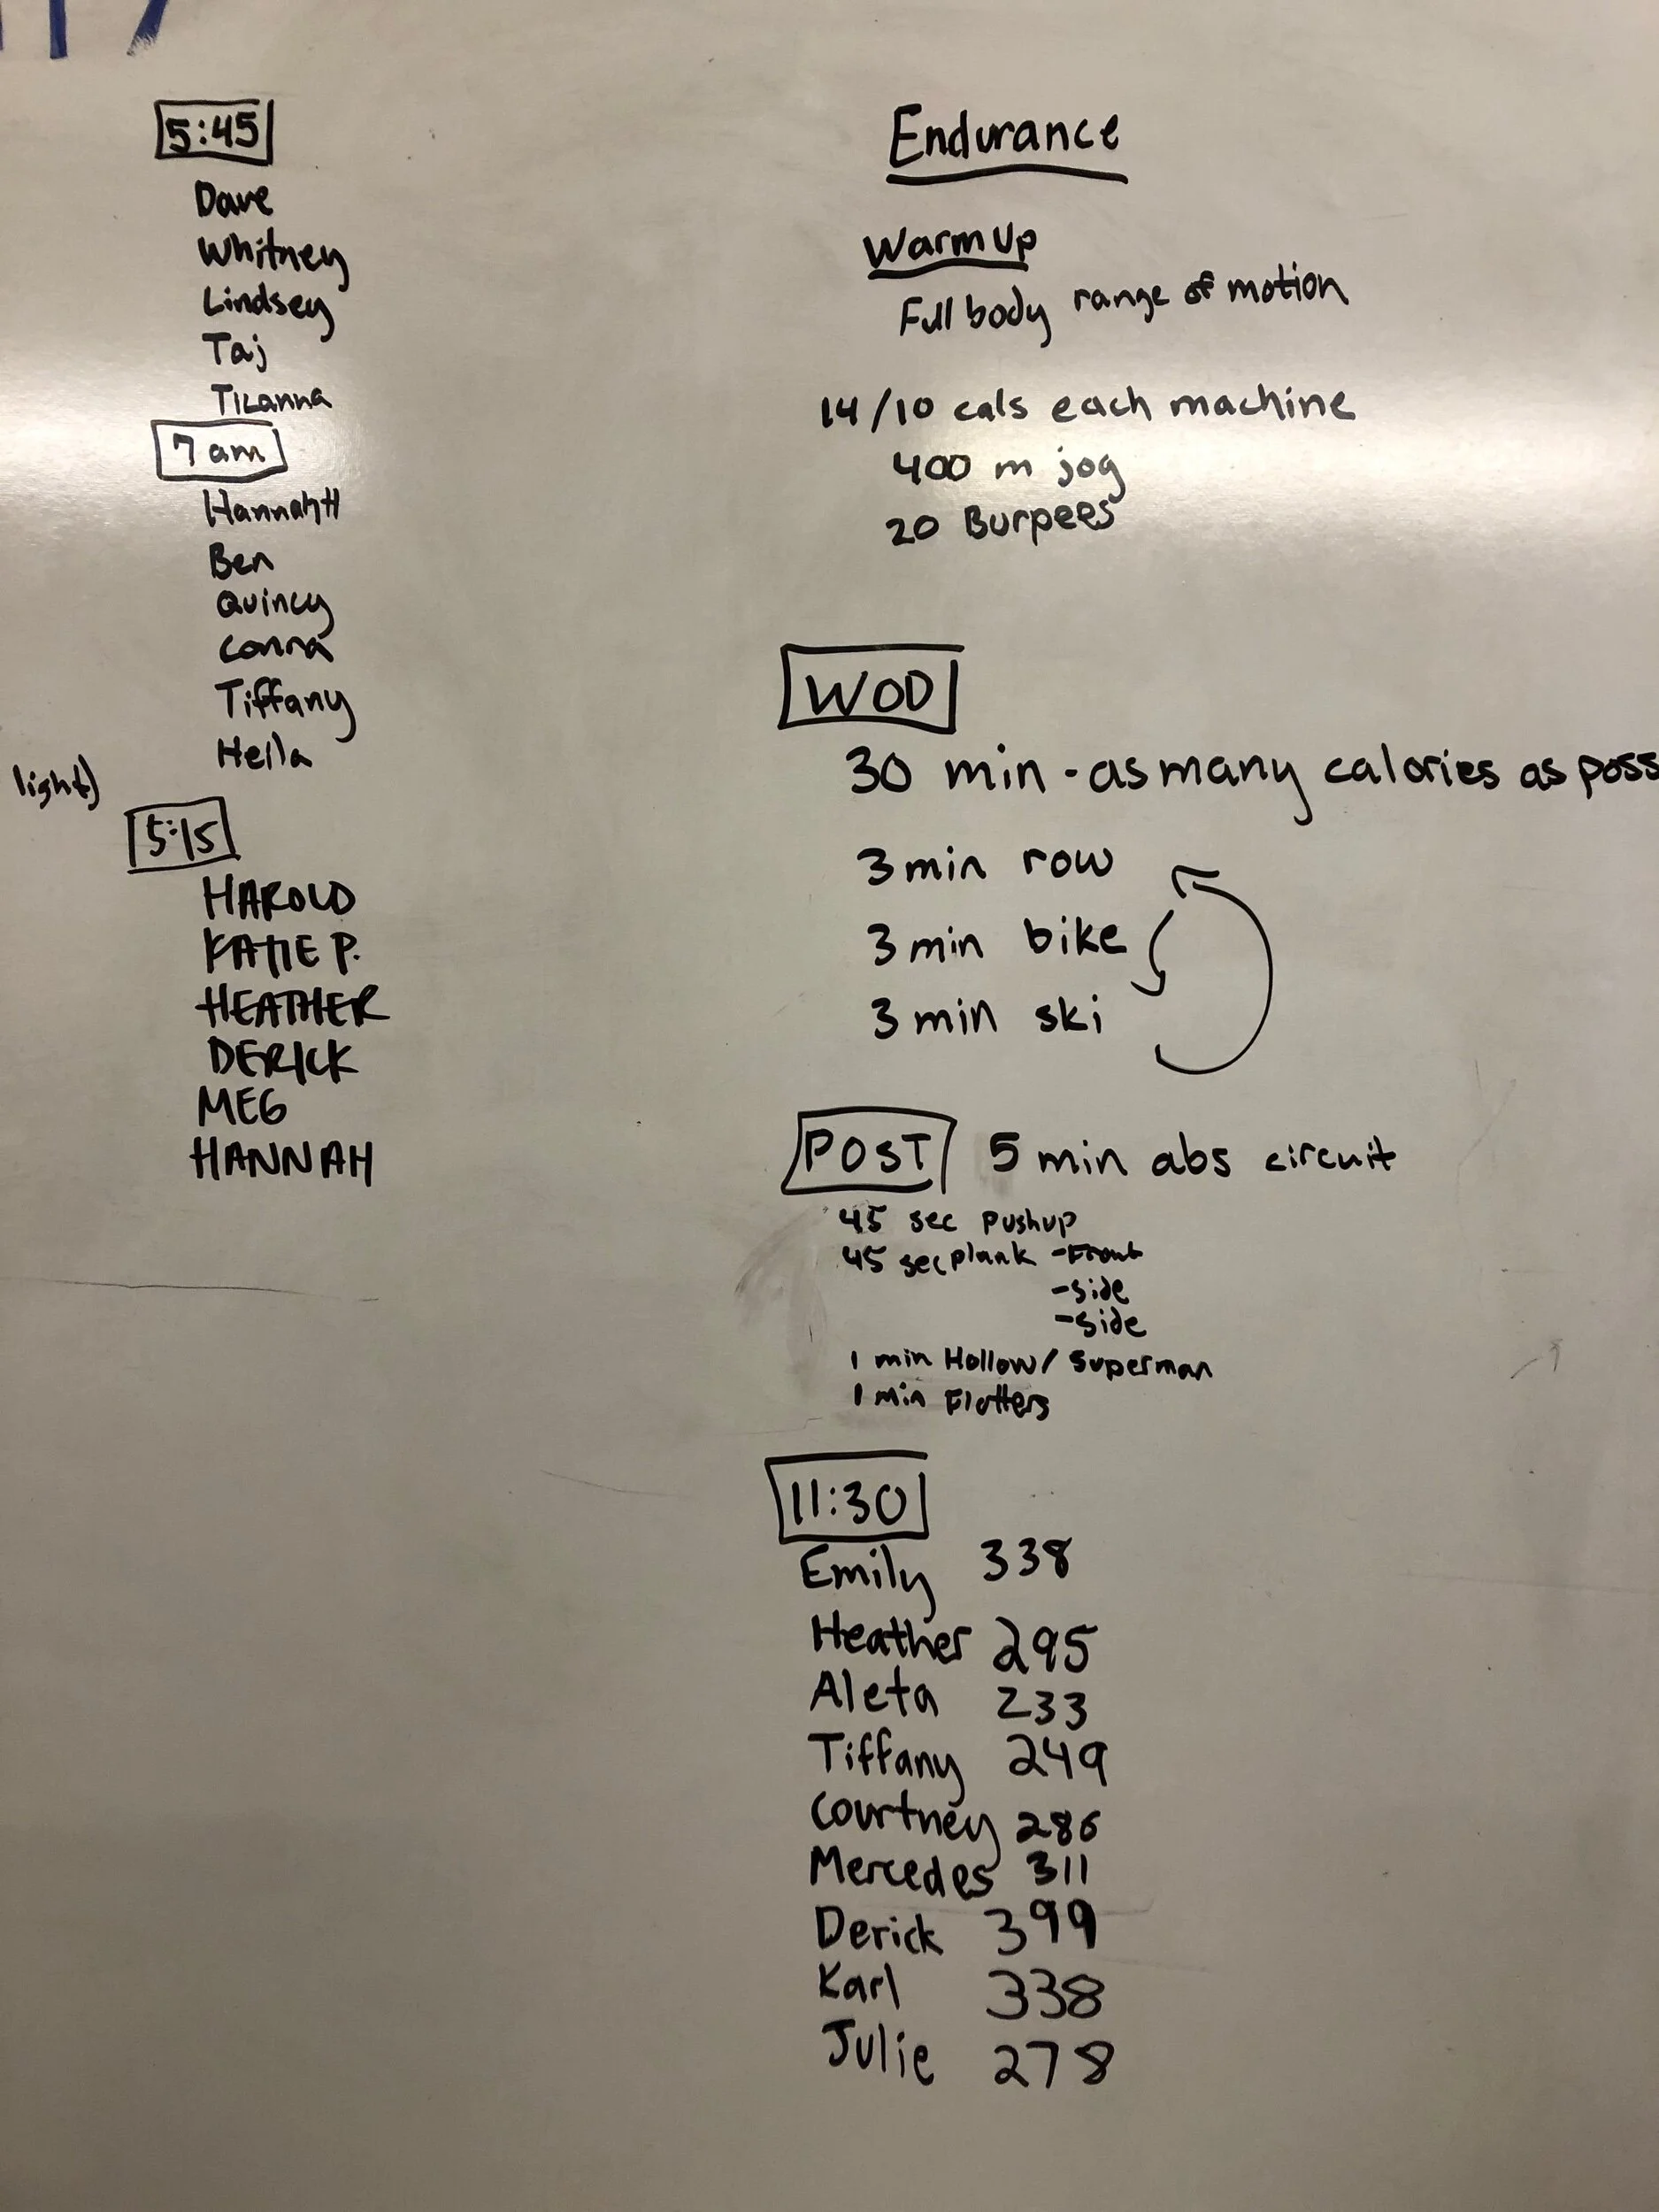 5:45
Dave
Whitney
Lindsey
Taj
7 am
Hannah H
Ben
Quincy
Conna
Tiffany
Heila
light)
5:15
HAROLD
KATIE P.
HEATHER
DERICK
MEG
HANNAH
Endurance
Warm Up
Full body range of motion
14/10 cals each machine
400 m jog
20 Burpees
WOD
30 min - as many calories as poss
3 min row
3 min bike
3 min ski
POST 5 min abs circuit
45 sec pushup
45 sec plank - Front
- side
- side
1 min Hollow / Superman
1 min Flutters
11:30
Emily 338
Heather 295
Aleta 233
Tiffany 249
Courtney 286
Mercedes 311
Derick 399
Karl 338
Julie 278